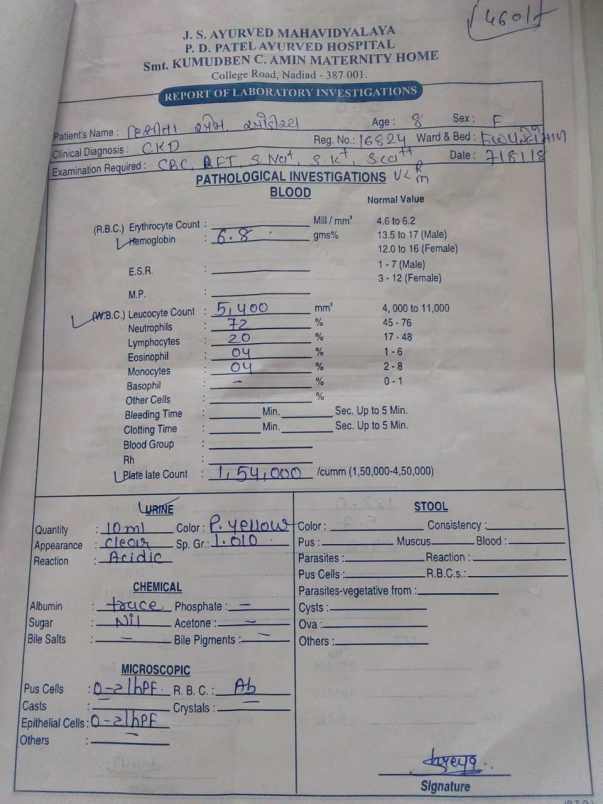 √4601/-
J. S. AYURVED MAHAVIDYALAYA
P. D. PATEL AYURVED HOSPITAL
Smt. KUMUDBEN C. AMIN MATERNITY HOME
College Road, Nadiad - 387 001.
REPORT OF LABORATORY INVESTIGATIONS
Patient's Name : Age : 8 Sex : F
Clinical Diagnosis : CKD Reg. No.: 16824 Ward & Bed :
Examination Required : CBC, RFT, S. Na+, S. K+, S. Ca++ Date : 7/8/18
PATHOLOGICAL INVESTIGATIONS U< R M
BLOOD
Normal Value
(R.B.C.) Erythrocyte Count : Mill / mm³ 4.6 to 6.2
Hemoglobin : 6.8 gms% 13.5 to 17 (Male)
12.0 to 16 (Female)
E.S.R. : 1 - 7 (Male)
3 - 12 (Female)
M.P. :
(W.B.C.) Leucocyte Count : 5,400 mm³ 4,000 to 11,000
Neutrophils : 72 % 45 - 76
Lymphocytes : 20 % 17 - 48
Eosinophil : 04 % 1 - 6
Monocytes : 04 % 2 - 8
Basophil : - % 0 - 1
Other Cells : %
Bleeding Time : Min. Sec. Up to 5 Min.
Clotting Time : Min. Sec. Up to 5 Min.
Blood Group :
Rh :
Plate late Count : 1,54,000 /cumm (1,50,000-4,50,000)
URINE
Quantity : 10ml Color : P. yellow
Appearance : clear Sp. Gr : 1.010
Reaction : Acidic
CHEMICAL
Albumin : trace Phosphate : -
Sugar : Nil Acetone : -
Bile Salts : - Bile Pigments : -
MICROSCOPIC
Pus Cells : 0-2/hPF R. B. C. : Ab
Casts : - Crystals : -
Epithelial Cells : 0-2/hPF
Others : -
STOOL
Color : Consistency :
Pus : Muscus Blood :
Parasites : Reaction :
Pus Cells : R.B.C.s :
Parasites-vegetative from :
Cysts :
Ova :
Others :
Signature